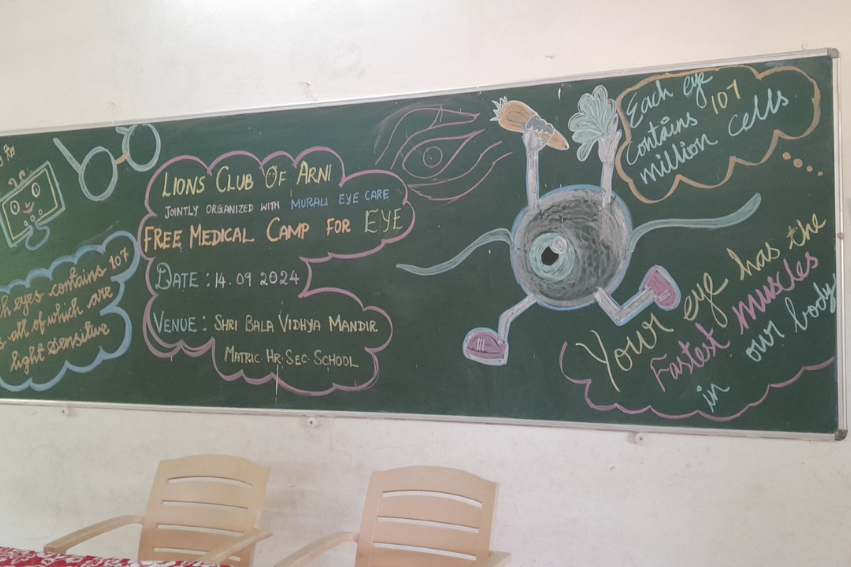 LIONS CLUB OF ARNI
JOINTLY ORGANIZED WITH MURALI EYE CARE
FREE MEDICAL CAMP FOR EYE
DATE : 14.09.2024
VENUE : SHRI BALA VIDHYA MANDIR
MATRIC. HR. SEC. SCHOOL
eyes contains 107
all of which are
light Sensitive
Each eye
contains 107
million cells
Your eye has the
Fastest muscles
in our body